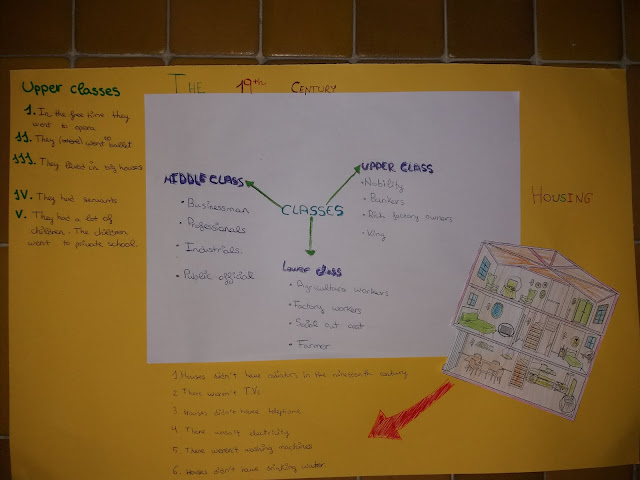 THE 19TH CENTURY
Upper classes
I. In the free time they
went to opera
II. They went to ballet
III. They lived in big houses
IV. They had servants
V. They had a lot of
children. The children
went to private school.
MIDDLE CLASS
• Businessman
• Professionals
• Industrials
• Public official
CLASSES
UPPER CLASS
• Nobility
• Bankers
• Rich factory owners
• King
Lower class
• Agriculture workers
• Factory workers
• Social out cast
• Farmer
HOUSING
1. Houses didn't have in the nineteenth century
2 There weren't T.Vs
3 Houses didn't have telephone
4 There wasn't electricity
5 There weren't washing machines
6. Houses didn't have drinking water